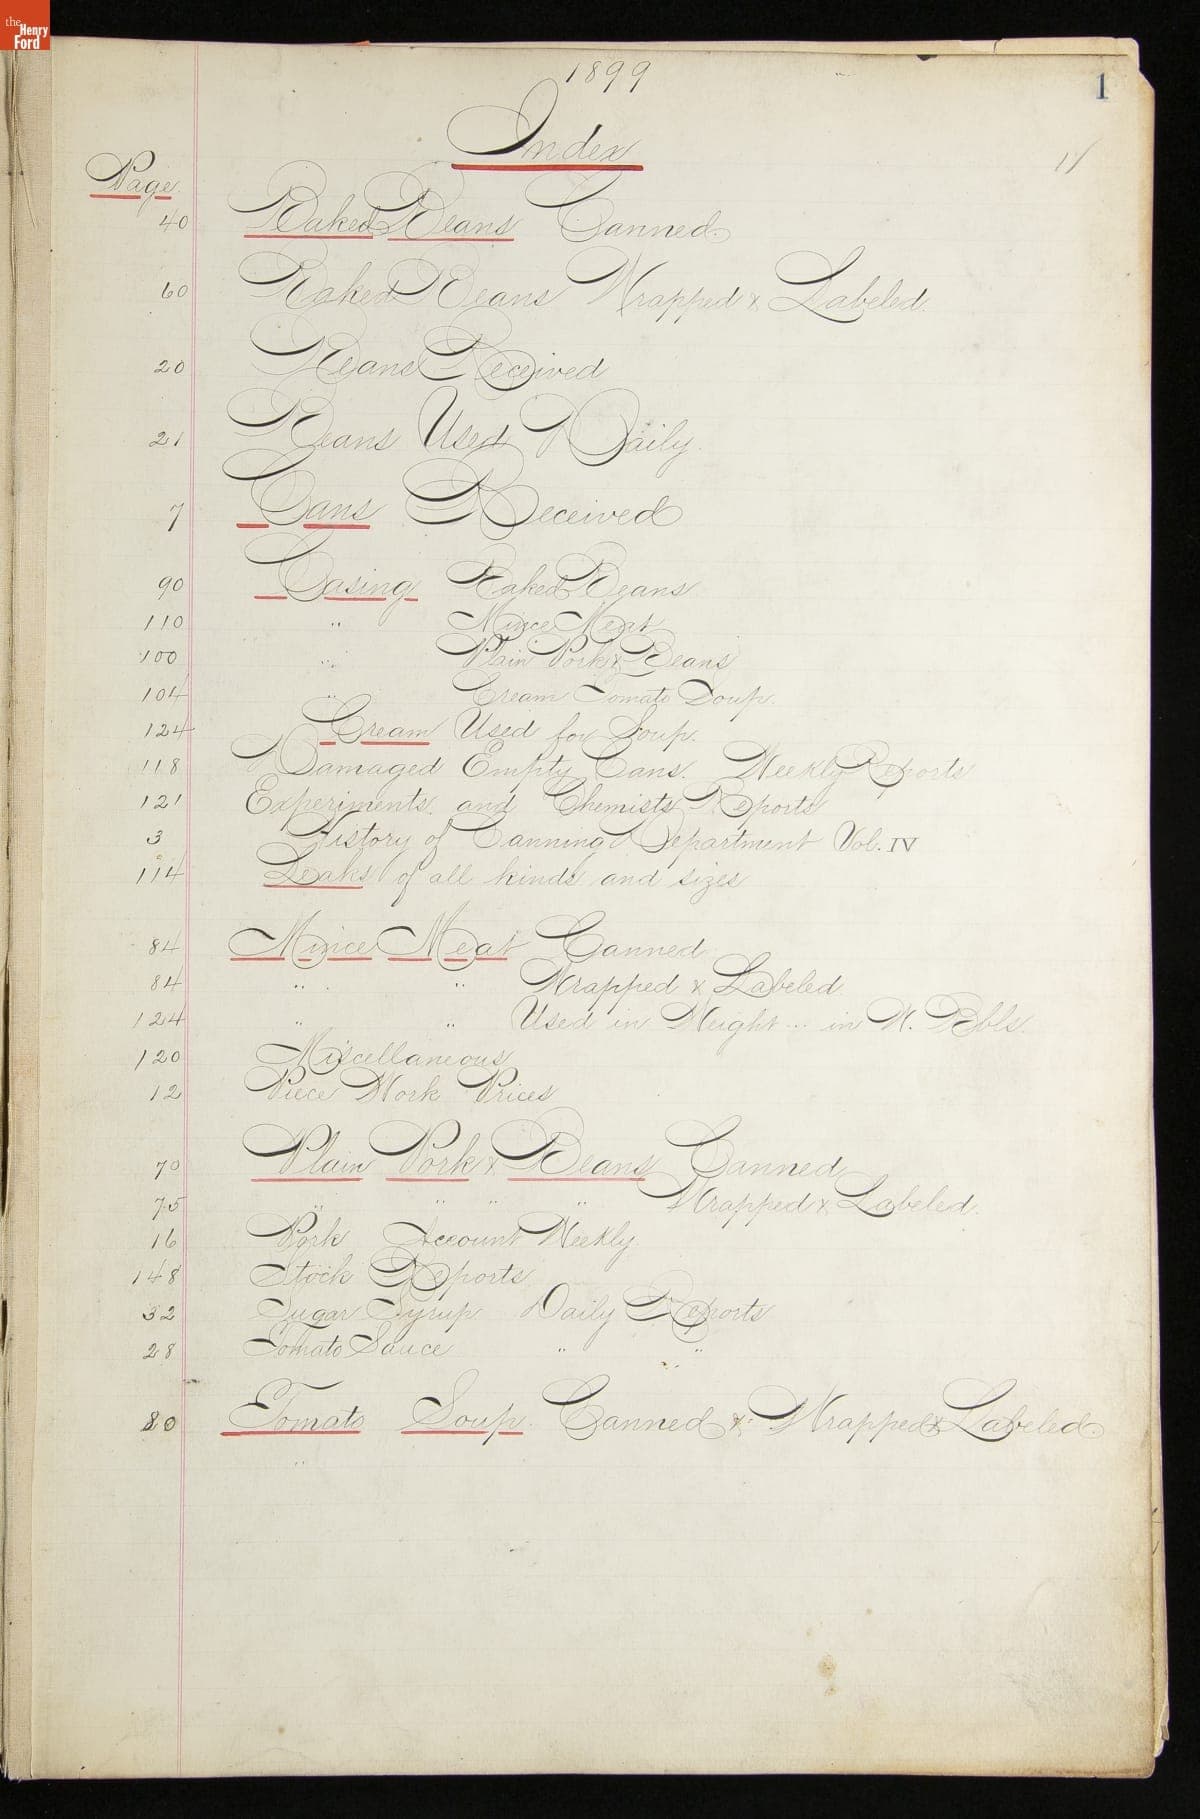 the Henry Ford
1899
1
Index
Page.
40 Baked Beans Canned.
60 Baked Beans Wrapped & Labeled.
20 Beans Received
21 Beans Used Daily.
7 Cans Received
90 Casing Baked Beans
110 " Mince Meat
100 " Plain Pork & Beans
104 " Cream Tomato Soup.
124 Cream Used for Soup.
118 Damaged Empty Cans. Weekly Reports
121 Experiments and Chemists Reports
3 History of Canning Department Vol. IV
114 Leaks of all kinds and sizes
84 Mince Meat Canned
84 " " Wrapped & Labeled.
124 " " Used in Weight " in W. Bbls.
120 Miscellaneous
12 Piece Work Prices
70 Plain Pork & Beans Canned
75 " " " " Wrapped & Labeled.
16 Pork Account Weekly.
148 Stock Reports.
32 Sugar Syrup Daily Reports
28 Tomato Sauce " "
80 Tomato Soup. Canned & Wrapped & Labeled.